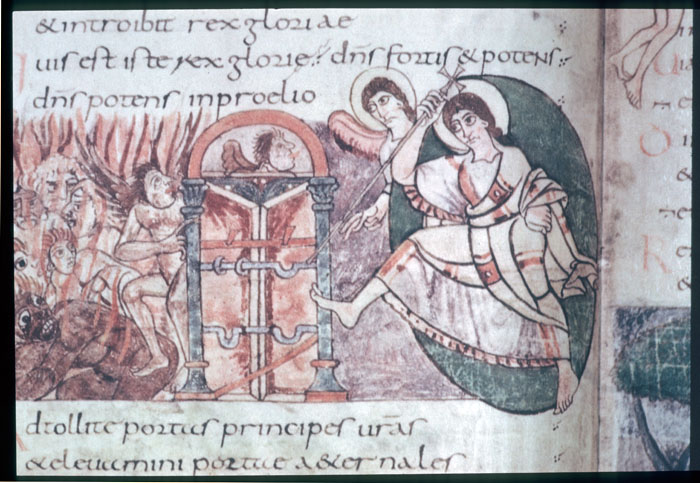 & introibit rex gloriae
uis est iste rex glorie dn̄s fortis & potens
dn̄s potens in proelio
dtollite portas principes urās
& eleuamini portae a&ernales